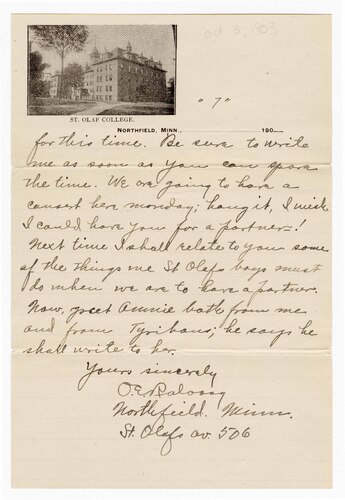 oct 3, 1903
"7"
ST. OLAF COLLEGE.
NORTHFIELD, MINN., 190
for this time. Be sure to write
me as soon as you can spare
the time. We are going to have a
consert here monday; hang it, I wish
I could have you for a partner!
Next time I shall relate to you some
of the things we St Olafs boys must
do when we are to have a partner.
Now, greet Annie both from me
and from ; he says he
shall write to her.
Yours sincerely
O.E.
Northfield. Minn.
St. Olafs av. 506